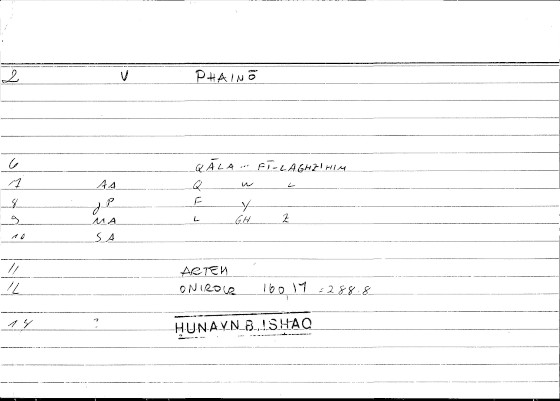 2 V PHAINŌ
6 QĀLA -- FĪ-LAGHZIHIM
7 AA Q W L
8 JP F Y
9 MA L GH Z
10 SA
11 ARTEM
12 ONIROCR 160,17 =288.8
14 ? HUNAYN B. ISHAQ